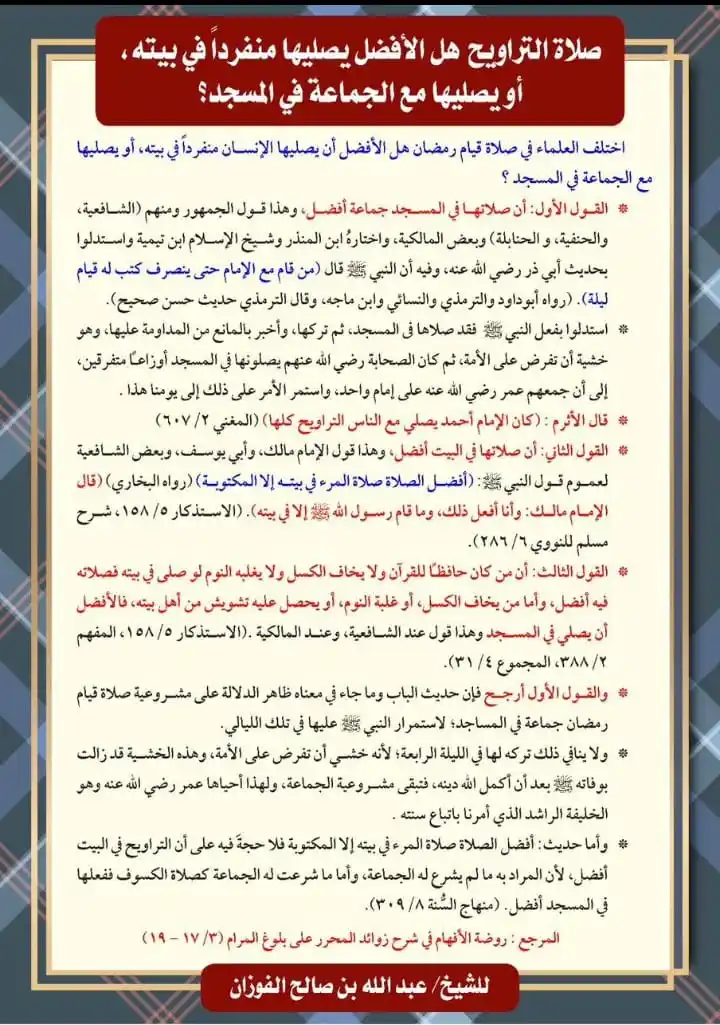 صلاة التراويح هل الأفضل يصليها منفرداً في بيته ،
أو يصليها مع الجماعة في المسجد؟
اختلف العلماء في صلاة قيام رمضان هل الأفضل أن يصليها الإنسان منفرداً في بيته، أو يصليها
مع الجماعة في المسجد ؟
* القول الأول: أن صلاتها في المسجد جماعة أفضل، وهذا قول الجمهور ومنهم (الشافعية،
والحنفية، و الحنابلة) وبعض المالكية، واختارهُ ابن المنذر وشيخ الإسلام ابن تيمية واستدلوا
بحديث أبي ذر رضي الله عنه، وفيه أن النبي ﷺ قال (من قام مع الإمام حتى ينصرف كتب له قيام
ليلة). (رواه أبوداود والترمذي والنسائي وابن ماجه، وقال الترمذي حديث حسن صحيح).
* استدلوا بفعل النبي ﷺ فقد صلاها في المسجد، ثم تركها، وأخبر بالمانع من المداومة عليها، وهو
خشية أن تفرض على الأمة، ثم كان الصحابة رضي الله عنهم يصلونها في المسجد أوزاعاً متفرقين،
إلى أن جمعهم عمر رضي الله عنه على إمام واحد، واستمر الأمر على ذلك إلى يومنا هذا .
* قال الأثرم : (كان الإمام أحمد يصلي مع الناس التراويح كلها) (المغني ٢/ ٦٠٧)
* القول الثاني: أن صلاتها في البيت أفضل، وهذا قول الإمام مالك، وأبي يوسف، وبعض الشافعية
لعموم قول النبي ﷺ: (أفضل الصلاة صلاة المرء في بيته إلا المكتوبة) (رواه البخاري) (قال
الإمام مالك: وأنا أفعل ذلك، وما قام رسول الله ﷺ إلا في بيته). (الاستذكار ٥/ ١٥٨، شرح
مسلم للنووي ٦/ ٢٨٦).
* القول الثالث: أن من كان حافظاً للقرآن ولا يخاف الكسل ولا يغلبه النوم لو صلى في بيته فصلاته
فيه أفضل، وأما من يخاف الكسل، أو غلبة النوم، أو يحصل عليه تشويش من أهل بيته، فالأفضل
أن يصلي في المسجد وهذا قول عند الشافعية، وعند المالكية .(الاستذكار ٥/ ١٥٨، المفهم
٢/ ٣٨٨، المجموع ٤/ ٣١).
* والقول الأول أرجح فإن حديث الباب وما جاء في معناه ظاهر الدلالة على مشروعية صلاة قيام
رمضان جماعة في المساجد؛ لاستمرار النبي ﷺ عليها في تلك الليالي.
* ولا ينافي ذلك تركه لها في الليلة الرابعة؛ لأنه خشي أن تفرض على الأمة، وهذه الخشية قد زالت
بوفاته ﷺ بعد أن أكمل الله دينه، فتبقى مشروعية الجماعة، ولهذا أحياها عمر رضي الله عنه وهو
الخليفة الراشد الذي أمرنا باتباع سنته .
* وأما حديث: أفضل الصلاة صلاة المرء في بيته إلا المكتوبة فلا حجةَ فيه على أن التراويح في البيت
أفضل، لأن المراد به ما لم يشرع له الجماعة، وأما ما شرعت له الجماعة كصلاة الكسوف ففعلها
في المسجد أفضل. (منهاج السُّنة ٨/ ٣٠٩).
المرجع : روضة الأفهام في شرح زوائد المحرر على بلوغ المرام (٣/ ١٧ - ١٩)
للشيخ/ عبد الله بن صالح الفوزان